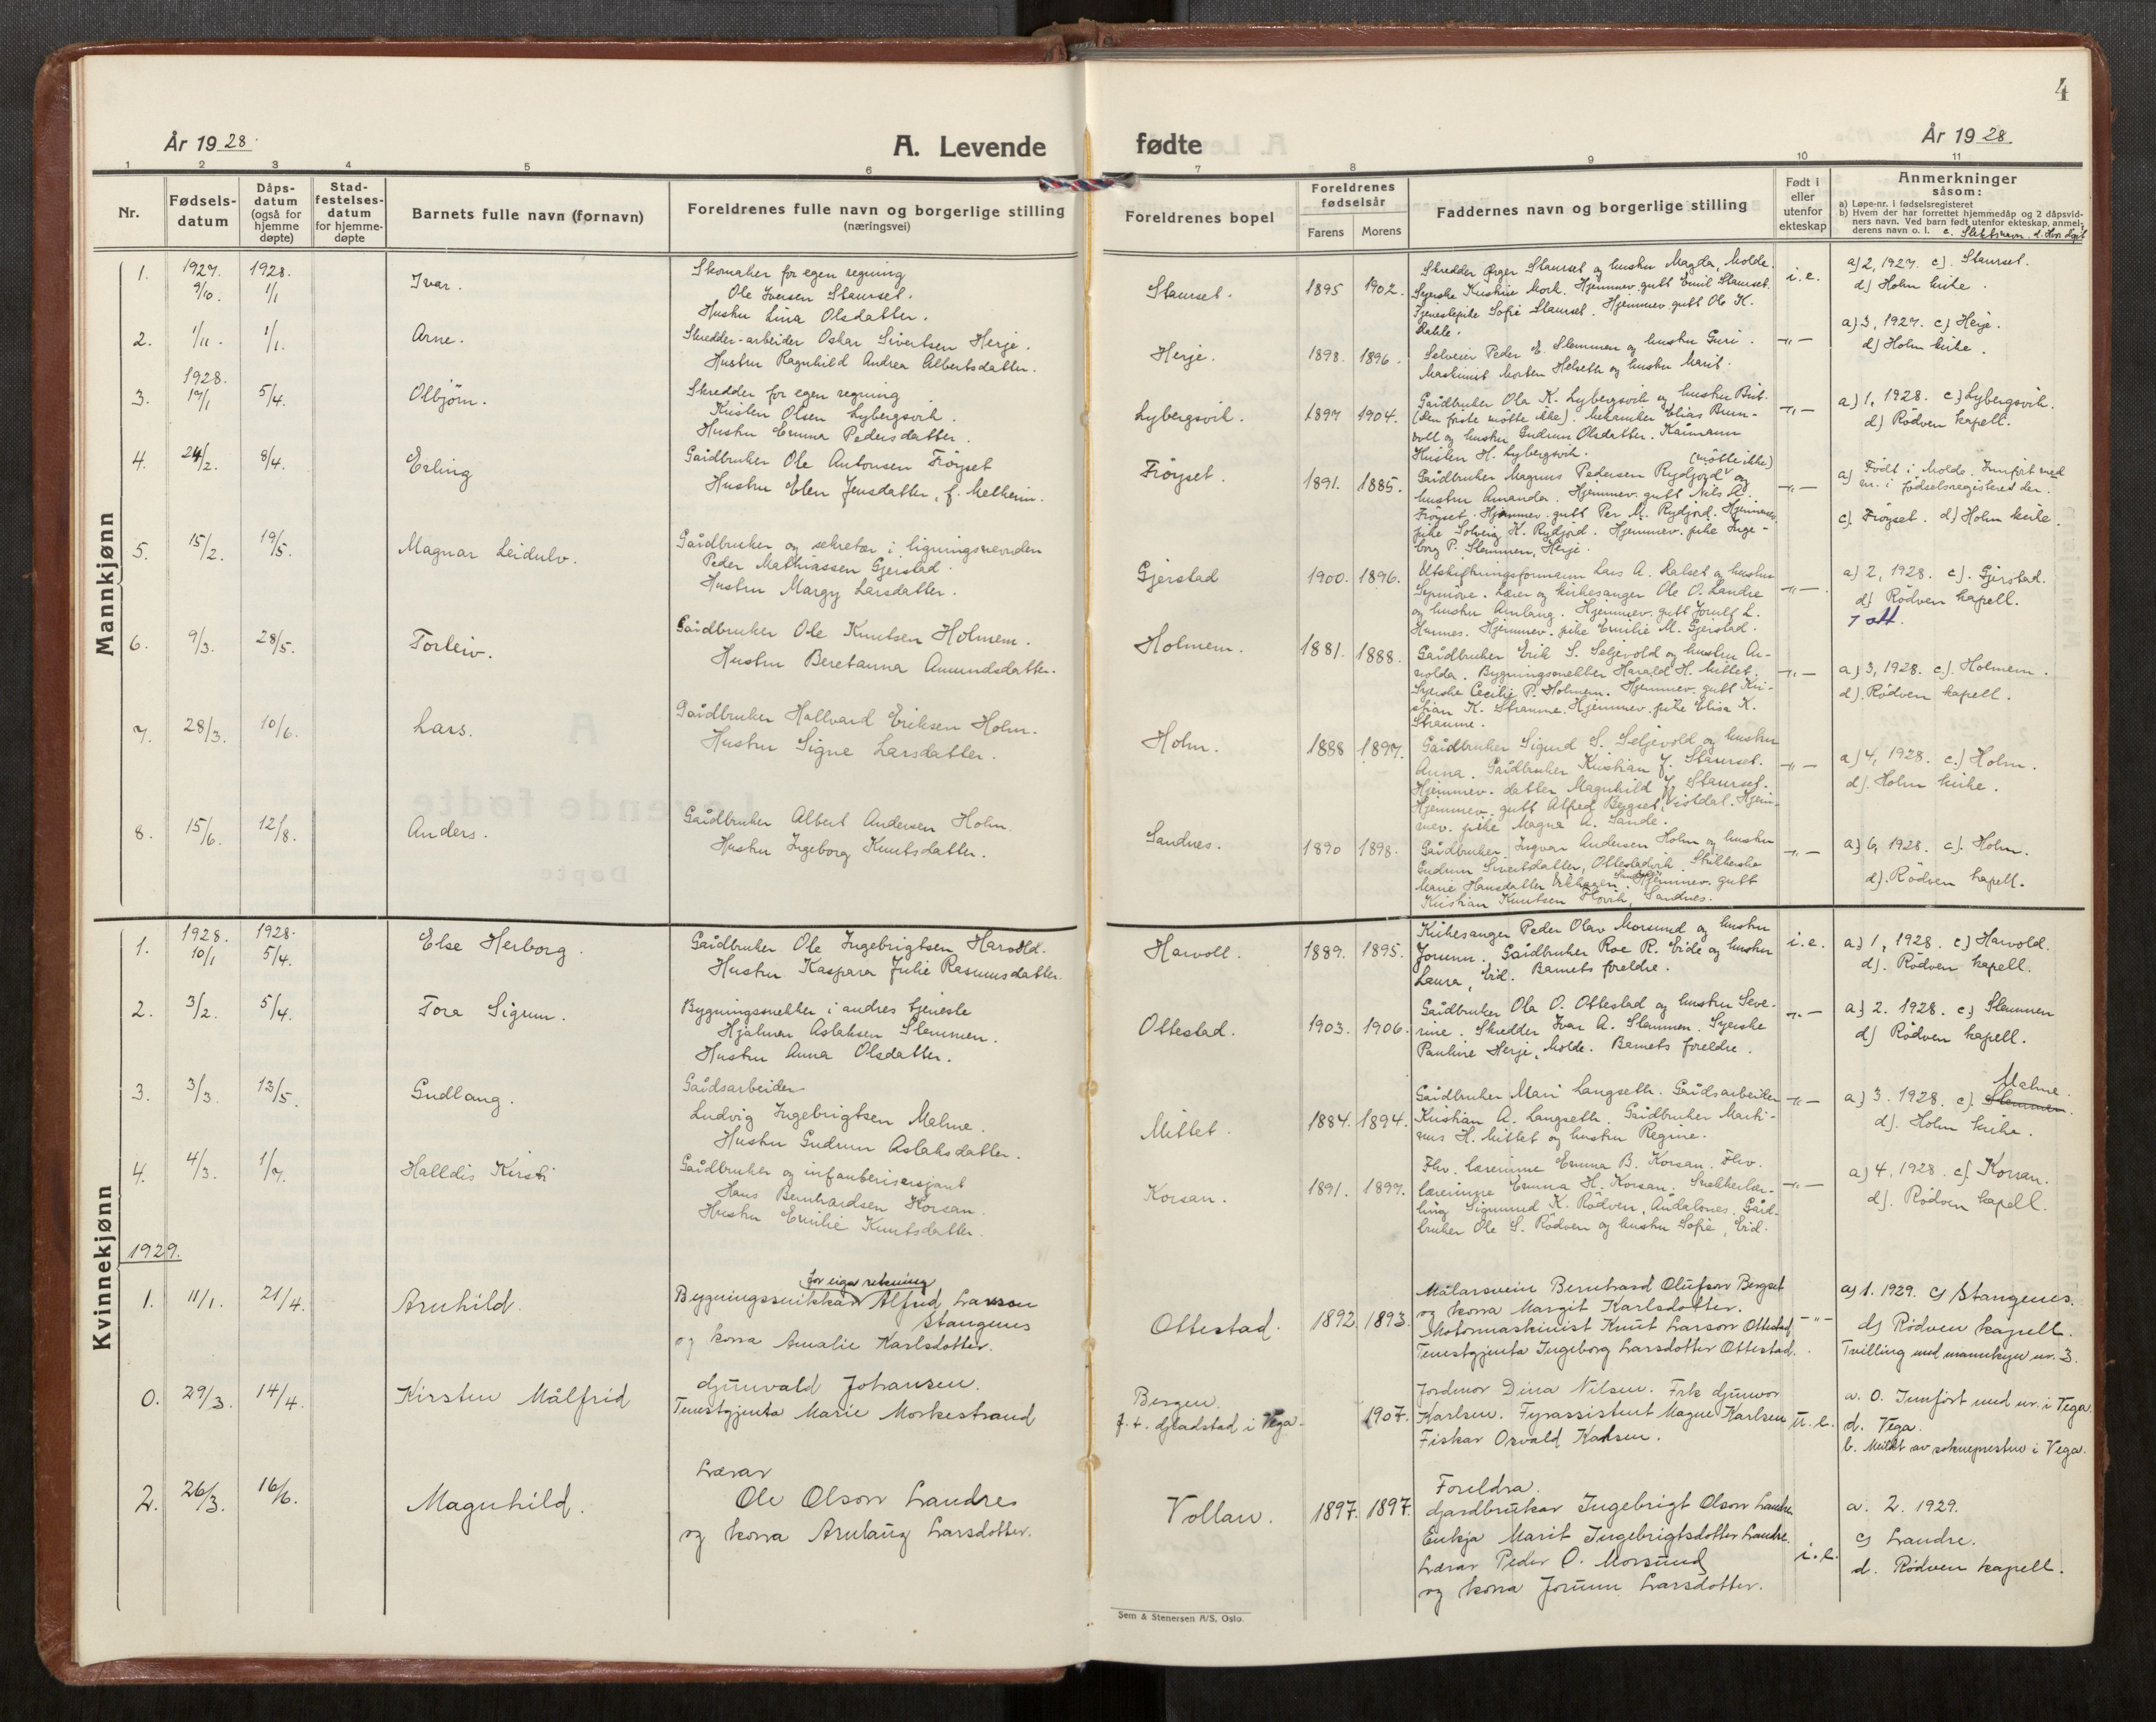 4
År 1928.
A. Levende
fødte
År 1928
1 2 3 4 5 6 7 8 9 10 11
Nr.
Fødsels-
datum
Dåps-
datum
(også for
hjemme
døpte)
Stad-
festelses-
datum
for hjemme-
døpte
Barnets fulle navn (fornavn)
Foreldrenes fulle navn og borgerlige stilling
(næringsvei)
Foreldrenes bopel
Foreldrenes
fødselsår
Farens Morens
Faddernes navn og borgerlige stilling
Født i
eller
utenfor
ekteskap
Anmerkninger
såsom:
a) Løpe-nr. i fødselsregisteret
b) Hvem der har forrettet hjemmedåp og 2 dåpsvid-
ners navn. Ved barn født utenfor ekteskap, anmel-
derens navn o. l. c. Slektsnavn. d. Hvor døpt
Mannkjønn
1. 1927. 9/10. 1928. 1/1 Ivar.
Skomaker for egen regning
Ole Iversen Staurset.
Hustru Lina Olsdatter.
Staurset. 1895 1902.
Skredder Ørger Staurset og hustru Magda, Molde.
Syerske Kristine Mork. Hjemmev. gutt Emil Staurset.
Tjenestepike Sofie Staurset. Hjemmev. gutt Ole K.
Dahle.
i. e.
a) 2, 1927. c). Staurset.
d) Holm kirke.
2. 1/11. 1/1. Arne.
Skredder-arbeider Oskar Sivertsen Herje.
Hustru Ragnhild Andrea Albertsdatter.
Herje. 1898. 1896.
Selveier Peder E. Slemmen og hustru Guri.
Maskinist Morten Helseth og hustru Marit.
-"-
a) 3, 1927. c) Herje.
d) Holm kirke.
3. 1928. 19/1 5/4. Olbjörn.
Skredder for egen regning
Kristen Olsen Lybergsvik.
Hustru Emma Pedersdatter.
Lybergsvik. 1897 1904.
Gårdbruker Ola K. Lybergsvik og hustru Brit.
(den siste møtte ikke). Mekaniker Elias Brun-
voll og hustru Gudrun Olsdatter. Kårmann
Kristen H. Lybergsvik.
-"-
a) 1, 1928. c) Lybergsvik.
d) Rödven kapell.
4. 24/2. 8/4. Erling
Gårdbruker Ole Antonsen Fröyset
Hustru Elen Jensdatter, f. Melheim.
Fröyset. 1891. 1885.
(møtte ikke)
Gårdbruker Magnus Pedersen Rydjord og
hustru Amanda. Hjemmev. gutt Nils A.
Fröyset. Hjemmev. gutt Per M. Rydjord. Hjemmev.
pike Solveig K. Rydjord. Hjemmev. pike Inge-
borg P. Slemmen, Herje.
-"-
a) Født i Molde. Innført med
nr. i fødselsregisteret der.
c). Fröyset. d) Holm kirke.
5. 15/2. 19/5. Magnar Leidulv.
Gårdbruker og sekretær i ligningsnevnden
Peder Mathiassen Gjerstad.
Hustru Margy Larsdatter.
Gjerstad 1900. 1896.
Utskiftningsformann Lars A. Dalset og hustru
Synnøve. Lærer og kirkesanger Ole O. Landre
og hustru Arnlaug. Hjemmev. gutt Jorulf L.
Hunnes. Hjemmev. pike Emilie M. Gjerstad.
-"-
a) 2, 1928. c). Gjerstad.
d) Rödven kapell.
1 att.
6. 9/3. 28/5. Torleiv.
Gårdbruker Ole Knutsen Holmem.
Hustru Beretanna Amundsdatter.
Holmem. 1881. 1888.
Gårdbruker Erik S. Seljevold og hustru Ar-
nolda. Bygningssnekker Harald H. Mittet.
Syerske Cecilie P. Holmem. Hjemmev. gutt Kri-
stian K. Straume. Hjemmev. pike Elisa K.
Straume.
-"-
a) 3, 1928. c). Holmem.
d) Rödven kapell.
7. 28/3. 10/6. Lars.
Gårdbruker Hallvard Eriksen Holm.
Hustru Signe Larsdatter.
Holm. 1888 1897.
Gårdbruker Sigurd S. Seljevold og hustru
Anna. Gårdbruker Kristian J. Staurset.
Hjemmev. datter Magnhild J. Staurset.
Hjemmev. gutt Alfred Bergset, Vistdal. Hjem-
mev. pike Magna A. Sande.
-"-
a) 4, 1928. c.) Holm.
d). Holm kirke.
8. 15/6. 12/8. Anders.
Gårdbruker Albert Andersen Holm.
Hustru Ingeborg Knutsdatter.
Sandnes. 1890 1898.
Gårdbruker Ingvar Andersen Holm og hustru
Gudrun Sivertsdatter, Ottestadvik. Strikkerske
Marie Hansdatter Vikhagen. Hjemmev. gutt
Kristian Knutsen Flovik, Sandnes.
-"-
a) 6, 1928. c). Holm.
d). Rödven kapell.
Kvinnekjønn
1. 1928. 10/1 1928. 5/4. Else Herborg.
Gårdbruker Ole Ingebrigtsen Harvold.
Hustru Kaspara Julie Rasmusdatter.
Harvoll. 1889. 1895.
Kirkesanger Peder Olav Morsund og hustru
Jorunn. Gårdbruker Roe R. Eide og hustru
Laura, Eid. Barnets foreldre.
i. e.
a) 1, 1928. c) Harvold.
d). Rödven kapell.
2. 3/2. 5/4. Tora Sigrun.
Bygningssnekker i andres tjeneste
Hjalmar Aslaksen Slemmen.
Hustru Anna Olsdatter.
Ottestad. 1903. 1906.
Gårdbruker Ola O. Ottestad og hustru Seve-
rine. Skredder Ivar A. Slemmen. Syerske
Pauline Herje, Molde. Barnets foreldre.
-"-
a) 2. 1928. c) Slemmen
d) Rödven kapell.
3. 3/3. 13/5. Gudlaug.
Gårdsarbeider
Ludvig Ingebrigtsen Malme.
Hustru Gudrun Aslaksdatter.
Mittet. 1884. 1894.
Gårdbruker Mari Langseth. Gårdsarbeider
Kristian A. Langseth. Gårdbruker Marti-
nus H. Mittet og hustru Regine.
-"-
Malme.
a) 3. 1928. c). Slemmen.
d). Holm kirke.
4. 4/3. 1/7. Halldis Kirsti
Gårdbruker og infanterisersjant
Hans Bernhardsen Korsan.
Hustru Emilie Knutsdatter.
Korsan. 1891. 1897.
Fhv. lærerinne Emma B. Korsan. Fhv.
lærerinne Emma H. Korsan. Snekkerlær-
ling Sigmund K. Rödven, Åndalsnes. Gård-
bruker Ole S. Rödven og hustru Sofie, Eid.
-"-
a) 4, 1928. c). Korsan.
d). Rödven kapell.
1929.
1. 11/1. 21/4. Arnhild.
for eiga rekning
Bygningssnikkar Alfred Larsson
Stangenes
og kona Amalie Karlsdotter.
Ottestad. 1892 1893.
Målarsvein Bernhard Olufson Bergset
og kona Margit Karlsdotter.
Motormaskinist Knut Larson Ottestad
Tenestgjenta Ingeborg Larsdotter Ottestad.
-"-
a) 1. 1929. c) Stangenes.
d) Rödven kapell.
Tvilling med mannkyn nr. 3.
0. 29/3. 14/4. Kirsten Målfrid
Gunvald Johansen.
Tenestgjenta Marie Morkestrand
Bergen.
f. t. Gladstad i Vega. 1907.
Jordmor Dina Nilsen. Frk Gunvor
Karlsen. Fyrassistent Magne Karlsen
Fiskar Osvald Karlsen.
u. e.
a. 0. Innfört med nr. i Vega.
d. Vega.
b. Meldt av soknepresten i Vega.
2. 26/3. 16/6. Magnhild.
Lærar
Ole Olson Landre
og kona Arnlaug Larsdotter.
Vollan. 1897. 1897.
Foreldra.
Gardbrukar Ingebrigt Olson Landre
Enkja Marit Ingebrigtsdotter Landre.
Lærar Peder O. Morsund
og kona Jorunn Larsdotter.
i. e.
a. 2. 1929.
c) Landre.
d. Rödven kapell.
Sem & Stenersen A/S, Oslo.